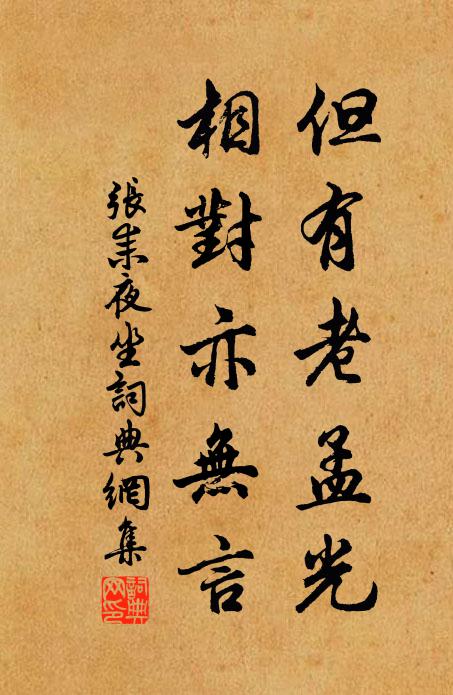 但有老孟光
相對亦無言
張耒夜坐詞典網集
詞典网印